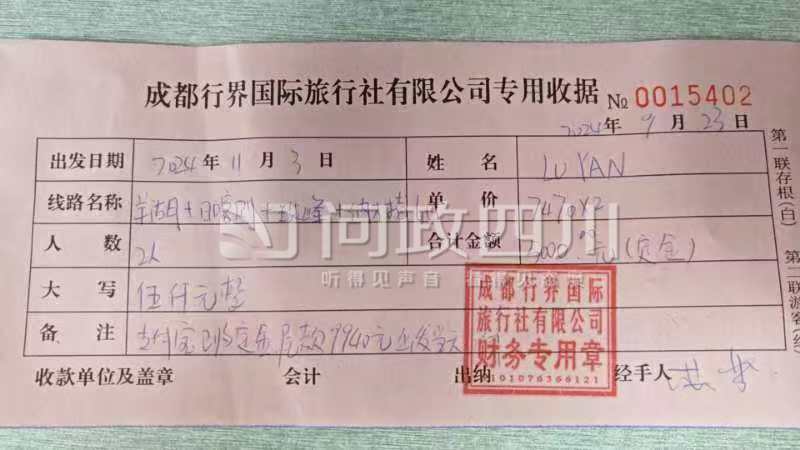 成都行界国际旅行社有限公司专用收据 № 0015402
2024年 9月 23日
出发日期 2024年 11月 3日 姓名 LU YAN
线路名称 羊湖+日喀则+珠峰+纳木措 单价 7470×2
人数 2人 合计金额 5000.00元(定金)
大写 伍仟元整
备注 支付宝收定金 尾款9940元出发当天
收款单位及盖章 会计 出纳 经手人
成都行界国际
旅行社有限公司
财务专用章
5101076366121
第一联存根(白) 第二联游客(红)
问政四川
听得见声音 看得见回音